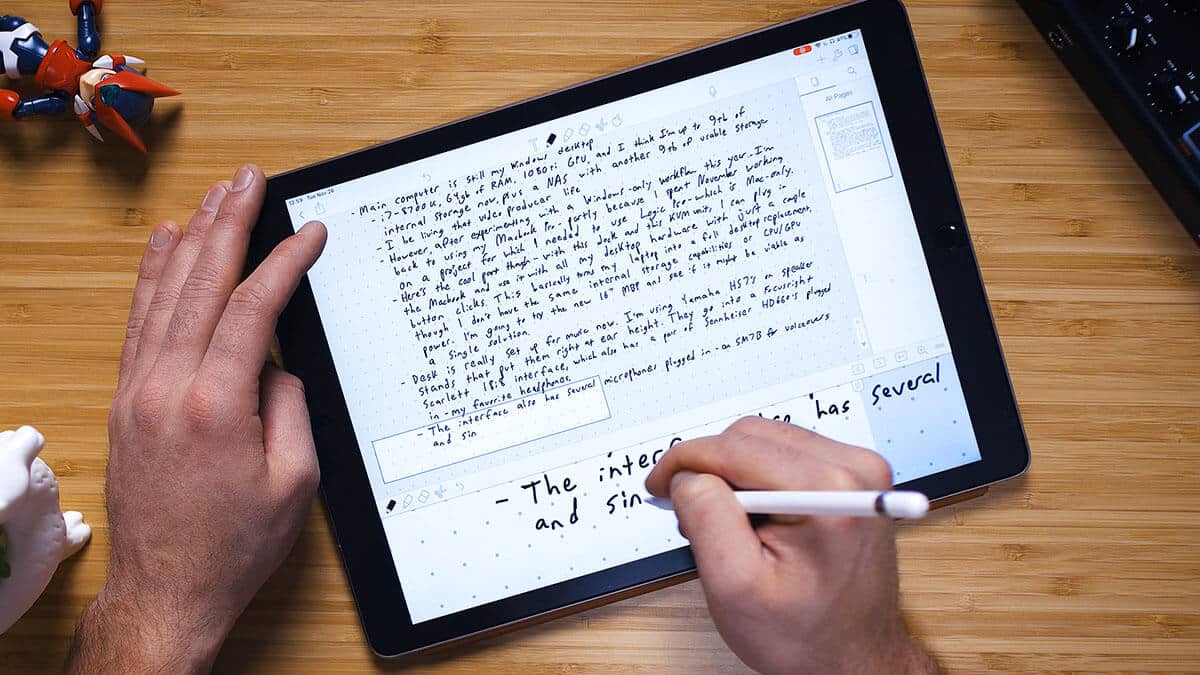 12:59 Tue Nov 26
All Pages
- Main computer is still my Windows desktop
- i7-8700K, 64gb of RAM, 1080ti GPU, and I think I'm up to 9tb of
internal storage now, plus a NAS with another 9tb of usable storage
- I be living that video producer life
- However, after experimenting with a Windows-only workflow this year, I'm
back to using my Macbook Pro - partly because I spent November working
on a project for which I needed to use Logic Pro - which is Mac-only.
- Here's the cool part though - with this dock and this KVM unit, I can plug in
the Macbook and use it with all my desktop hardware with just a couple
button clicks. This basically turns my laptop into a full desktop replacement,
though I don't have the same internal storage capabilities or CPU/GPU
power. I'm going to try the new 16" MBP and see if it might be viable as
a single solution.
- Desk is really set up for music now. I'm using Yamaha HS7's on speaker
stands that put them right at ear height. They go into a Focusright
Scarlett 18i8 interface, which also has a pair of Sennheiser HD660's plugged
in - my favorite headphones.
- The interface also has several microphones plugged in - an SM7B for voiceovers
and sin
- The inter has several
and sin